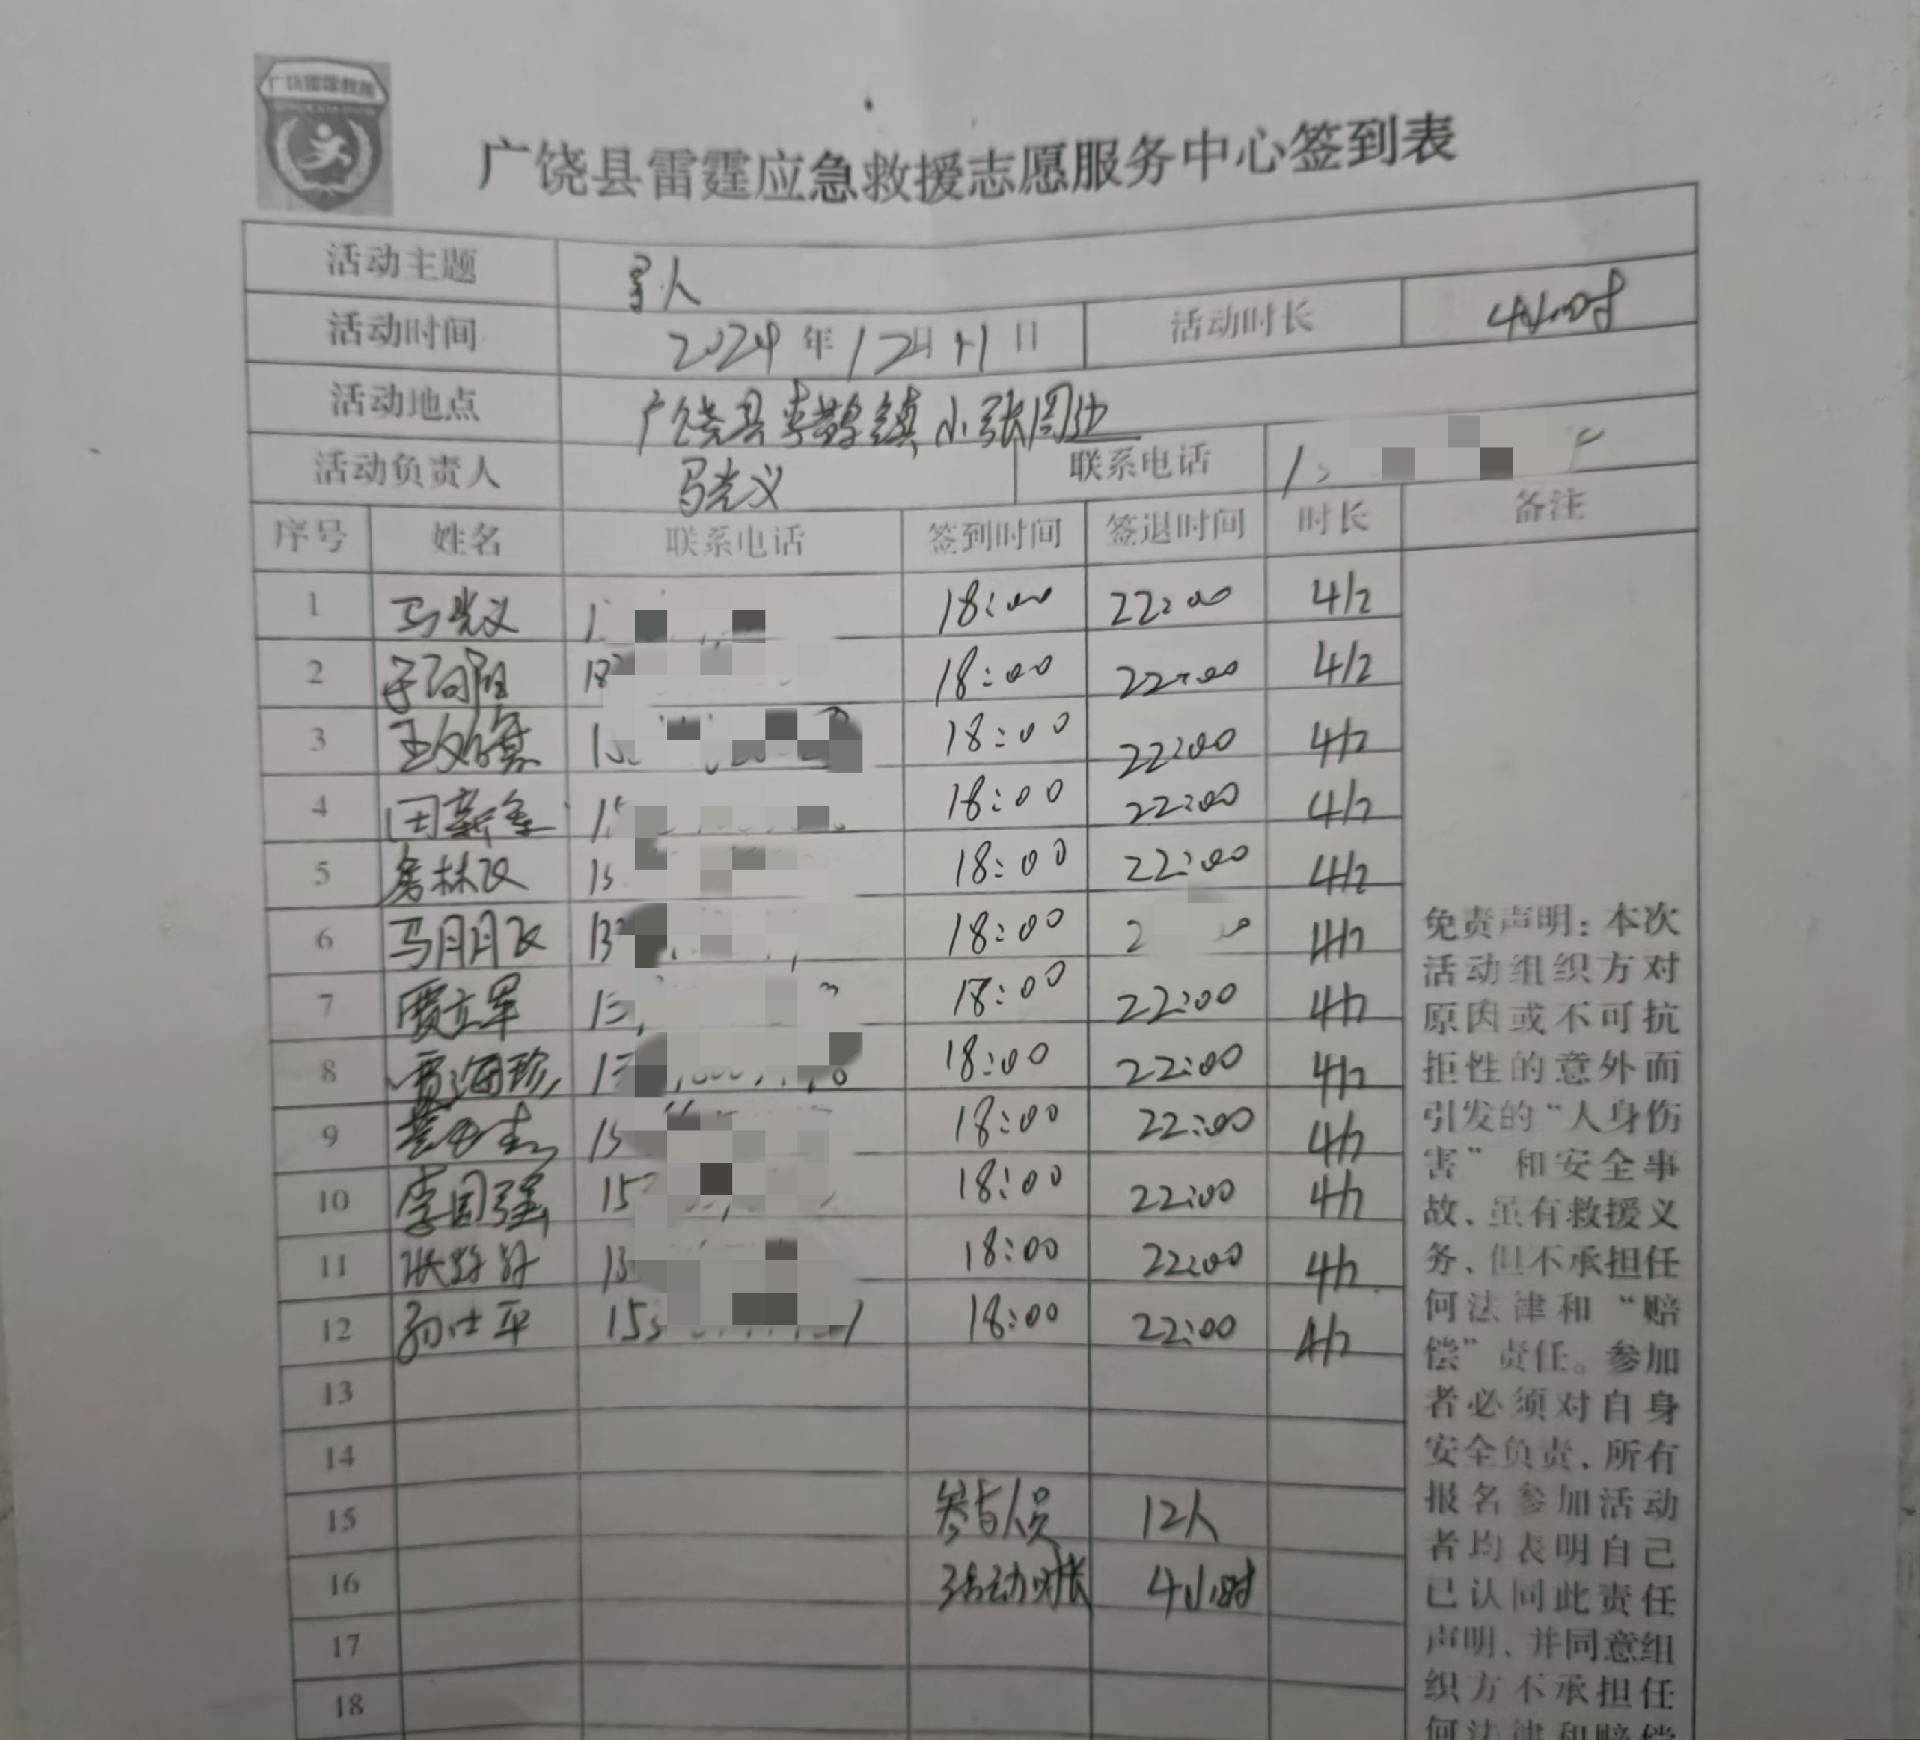 广饶雷霆救援
广饶县雷霆应急救援志愿服务中心签到表
活动主题 寻人
活动时间 2024年12月11日 活动时长 4小时
活动地点 广饶县李鹊镇小张周边
活动负责人 马光义 联系电话
序号 姓名 联系电话 签到时间 签退时间 时长 备注
1 马光义 18:00 22:00 4h
2 18:00 22:00 4h
3 18:00 22:00 4h
4 田新奎 18:00 22:00 4h
5 18:00 22:00 4h
6 18:00 4h
7 贾立军 18:00 22:00 4h
8 贾海珍 18:00 22:00 4h
9 18:00 22:00 4h
10 李国强 18:00 22:00 4h
11 18:00 22:00 4h
12 孙仕平 18:00 22:00 4h
13
14
15 参与人员 12人
16 活动时长 4小时
17
18
免责声明：本次
活动组织方对
原因或不可抗
拒性的意外面
引发的“人身伤
害”和安全事
故、虽有救援义
务、但不承担任
何法律和“赔
偿”责任。参加
者必须对自身
安全负责、所有
报名参加活动
者均表明自己
已认同此责任
声明、并同意组
织方不承担任
何法律和赔偿